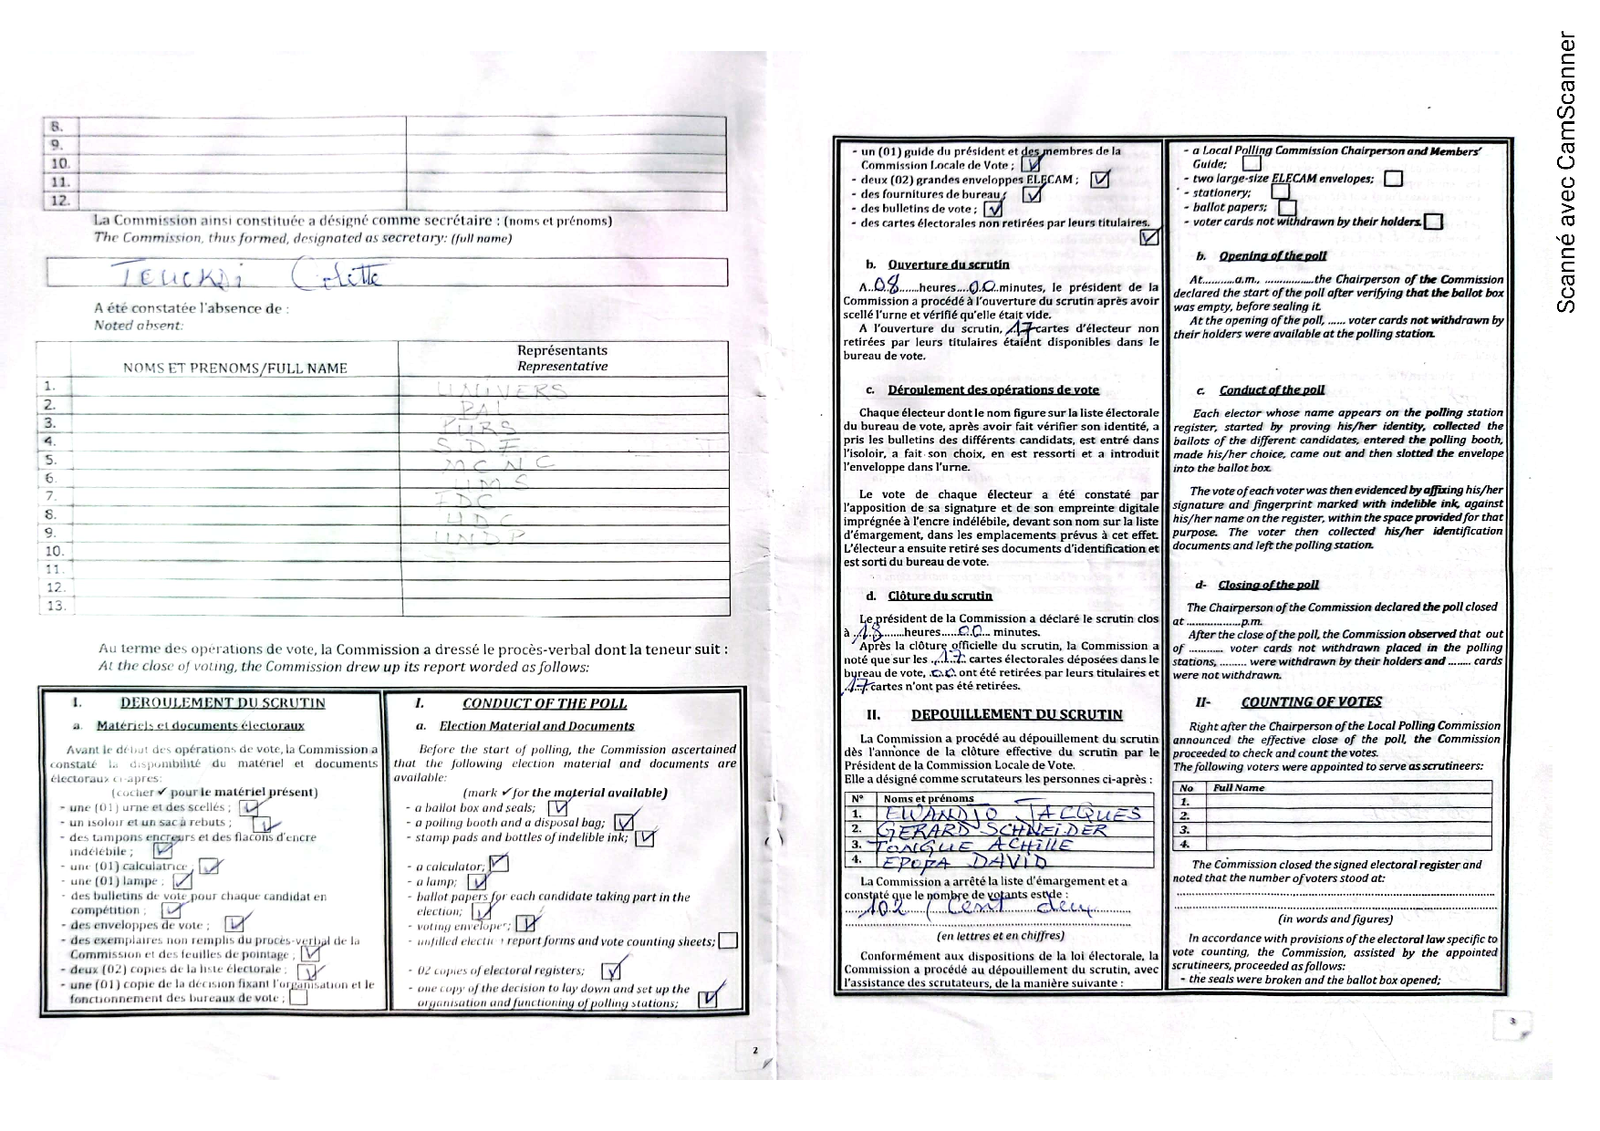 8.
9.
10.
11.
12.
La Commission ainsi constituée a désigné comme secrétaire : (noms et prénoms)
The Commission, thus formed, designated as secretary: (full name)
Colette
A été constatée l'absence de :
Noted absent:
NOMS ET PRENOMS/FULL NAME
Représentants
Representative
1. UNIVERS
2. PAL
3. PURS
4. S.D.F
5. MCNC
6. UMS
7. FDC
8. UDC
9. UNDP
10.
11.
12.
13.
Au terme des opérations de vote, la Commission a dressé le procès-verbal dont la teneur suit :
At the close of voting, the Commission drew up its report worded as follows:
I. DEROULEMENT DU SCRUTIN
a. Matériels et documents électoraux
Avant le début des opérations de vote, la Commission a
constaté la disponibilité du matériel et documents
électoraux ci-apres:
(cocher ✓ pour le matériel présent)
- une (01) urne et des scellés ; ☑
- un isoloir et un sac à rebuts ; ☑
- des tampons encreurs et des flacons d'encre
indélébile ; ☑
- une (01) calculatrice ☑
- une (01) lampe ; ☑
- des bulletins de vote pour chaque candidat en
compétition ; ☑
- des enveloppes de vote ; ☑
- des exemplaires non remplis du procès-verbal de la
Commission et des feuilles de pointage ; ☑
- deux (02) copies de la liste électorale ; ☑
- une (01) copie de la décision fixant l'organisation et le
fonctionnement des bureaux de vote ; ☐
I. CONDUCT OF THE POLL
a. Election Material and Documents
Before the start of polling, the Commission ascertained
that the following election material and documents are
available:
(mark ✓ for the material available)
- a ballot box and seals; ☑
- a polling booth and a disposal bag; ☑
- stamp pads and bottles of indelible ink; ☑
- a calculator; ☑
- a lamp; ☑
- ballot papers for each candidate taking part in the
election; ☑
- voting envelopes; ☑
- unfilled report forms and vote counting sheets; ☐
- 02 copies of electoral registers; ☑
- one copy of the decision to lay down and set up the
organisation and functioning of polling stations; ☑
2
- un (01) guide du président et des membres de la
Commission Locale de Vote ; ☑
- deux (02) grandes enveloppes ELECAM ; ☑
- des fournitures de bureau ; ☑
- des bulletins de vote ; ☑
- des cartes électorales non retirées par leurs titulaires.
☑
b. Ouverture du scrutin
A..08......heures....00.minutes, le président de la
Commission a procédé à l'ouverture du scrutin après avoir
scellé l'urne et vérifié qu'elle était vide.
A l'ouverture du scrutin, 17 cartes d'électeur non
retirées par leurs titulaires étaient disponibles dans le
bureau de vote.
c. Déroulement des opérations de vote
Chaque électeur dont le nom figure sur la liste électorale
du bureau de vote, après avoir fait vérifier son identité, a
pris les bulletins des différents candidats, est entré dans
l'isoloir, a fait son choix, en est ressorti et a introduit
l'enveloppe dans l'urne.
Le vote de chaque électeur a été constaté par
l'apposition de sa signature et de son empreinte digitale
imprégnée à l'encre indélébile, devant son nom sur la liste
d'émargement, dans les emplacements prévus à cet effet.
L'électeur a ensuite retiré ses documents d'identification et
est sorti du bureau de vote.
d. Clôture du scrutin
Le président de la Commission a déclaré le scrutin clos
à .18.......heures.....00.... minutes.
Après la clôture officielle du scrutin, la Commission a
noté que sur les ..17.. cartes électorales déposées dans le
bureau de vote, .00. ont été retirées par leurs titulaires et
.17 cartes n'ont pas été retirées.
II. DEPOUILLEMENT DU SCRUTIN
La Commission a procédé au dépouillement du scrutin
dès l'annonce de la clôture effective du scrutin par le
Président de la Commission Locale de Vote.
Elle a désigné comme scrutateurs les personnes ci-après :
N° Noms et prénoms
1. EWANDJO JACQUES
2. GERARD SCHNEIDER
3. TONGUE ACHILLE
4. EPOPA DAVID
La Commission a arrêté la liste d'émargement et a
constaté que le nombre de votants est de :
102 / Cent deux
(en lettres et en chiffres)
Conformément aux dispositions de la loi électorale, la
Commission a procédé au dépouillement du scrutin, avec
l'assistance des scrutateurs, de la manière suivante :
- a Local Polling Commission Chairperson and Members'
Guide; ☐
- two large-size ELECAM envelopes; ☐
- stationery; ☐
- ballot papers; ☐
- voter cards not withdrawn by their holders. ☐
b. Opening of the poll
At...........a.m., ................the Chairperson of the Commission
declared the start of the poll after verifying that the ballot box
was empty, before sealing it.
At the opening of the poll, ...... voter cards not withdrawn by
their holders were available at the polling station.
c. Conduct of the poll
Each elector whose name appears on the polling station
register, started by proving his/her identity, collected the
ballots of the different candidates, entered the polling booth,
made his/her choice, came out and then slotted the envelope
into the ballot box.
The vote of each voter was then evidenced by affixing his/her
signature and fingerprint marked with indelible ink, against
his/her name on the register, within the space provided for that
purpose. The voter then collected his/her identification
documents and left the polling station.
d- Closing of the poll
The Chairperson of the Commission declared the poll closed
at ..................p.m.
After the close of the poll, the Commission observed that out
of .......... voter cards not withdrawn placed in the polling
stations, ......... were withdrawn by their holders and ........ cards
were not withdrawn.
II- COUNTING OF VOTES
Right after the Chairperson of the Local Polling Commission
announced the effective close of the poll, the Commission
proceeded to check and count the votes.
The following voters were appointed to serve as scrutineers:
No Full Name
1.
2.
3.
4.
The Commission closed the signed electoral register and
noted that the number of voters stood at:
(in words and figures)
In accordance with provisions of the electoral law specific to
vote counting, the Commission, assisted by the appointed
scrutineers, proceeded as follows:
- the seals were broken and the ballot box opened;
3
Scanné avec CamScanner